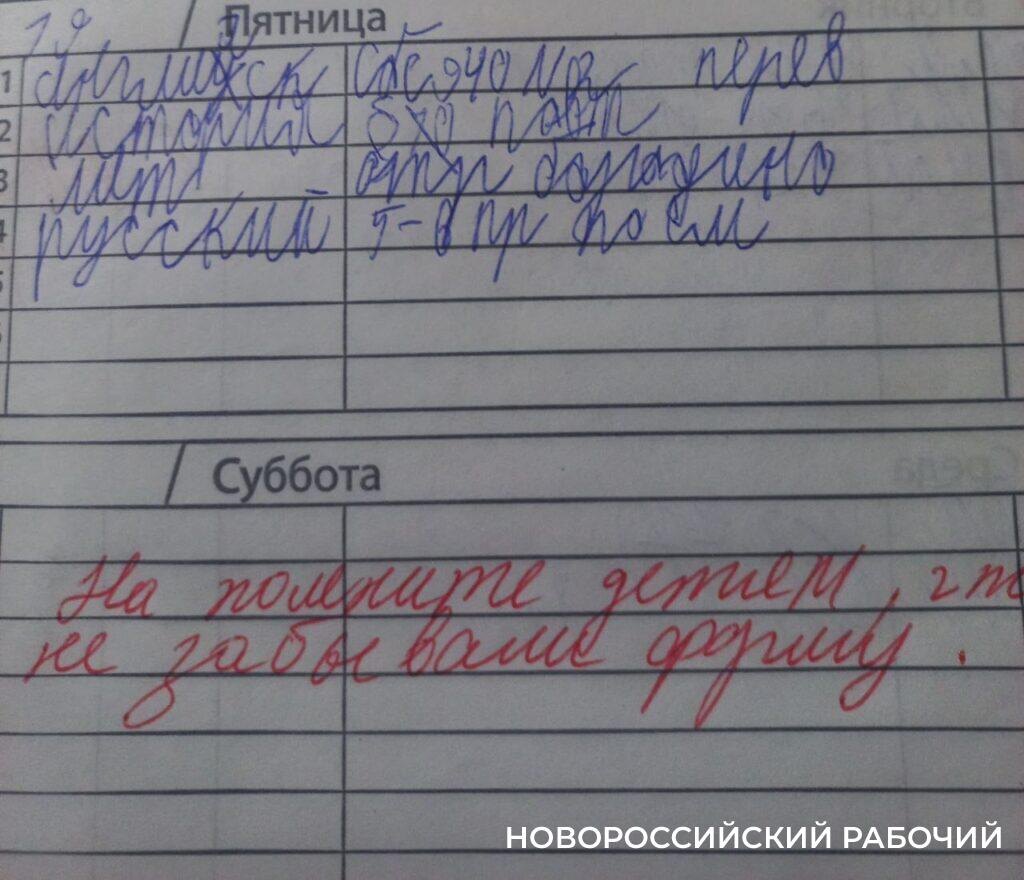 19. Пятница
1 английск перев
2 история
3 лит - отр бородино
4 русский 5-6 пр по ем
5
Суббота
На помните детям, что
не забывали форму.
НОВОРОССИЙСКИЙ РАБОЧИЙ